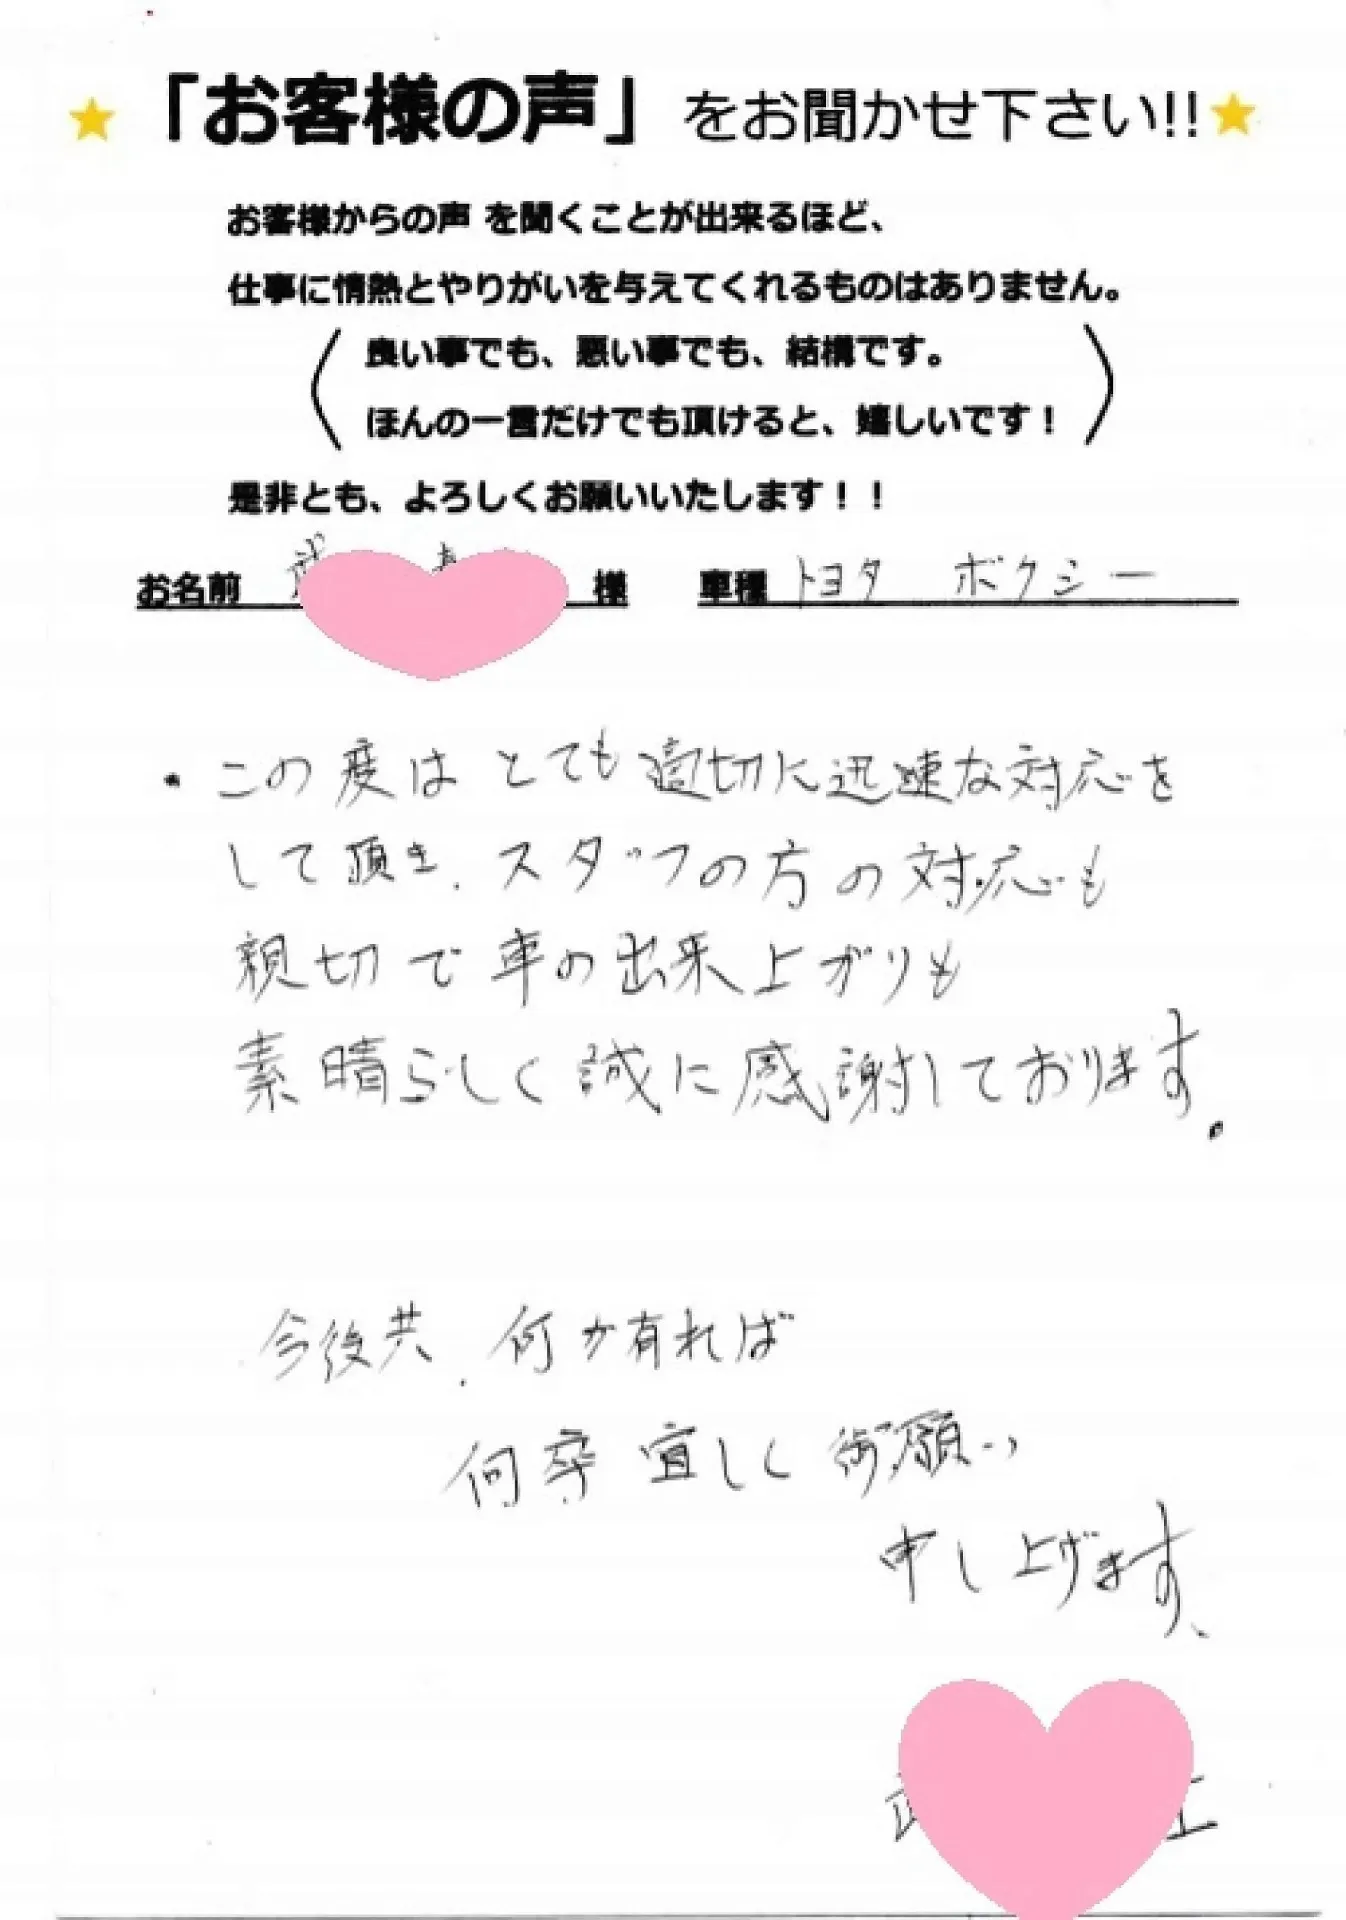 「お客様の声」をお聞かせ下さい!!
お客様からの声 を聞くことが出来るほど、
仕事に情熱とやりがいを与えてくれるものはありません。
良い事でも、悪い事でも、結構です。
ほんの一言だけでも頂けると、嬉しいです！
是非とも、よろしくお願いいたします！！
お名前 様 車種 トヨタ ボクシー
・この度は とても適切に迅速な対応を
して頂き、スタッフの方の対応も
親切で車の出来上がりも
素晴らしく誠に感謝しております。
今後共、何か有れば
何卒 宜しく御願い
申し上げます、